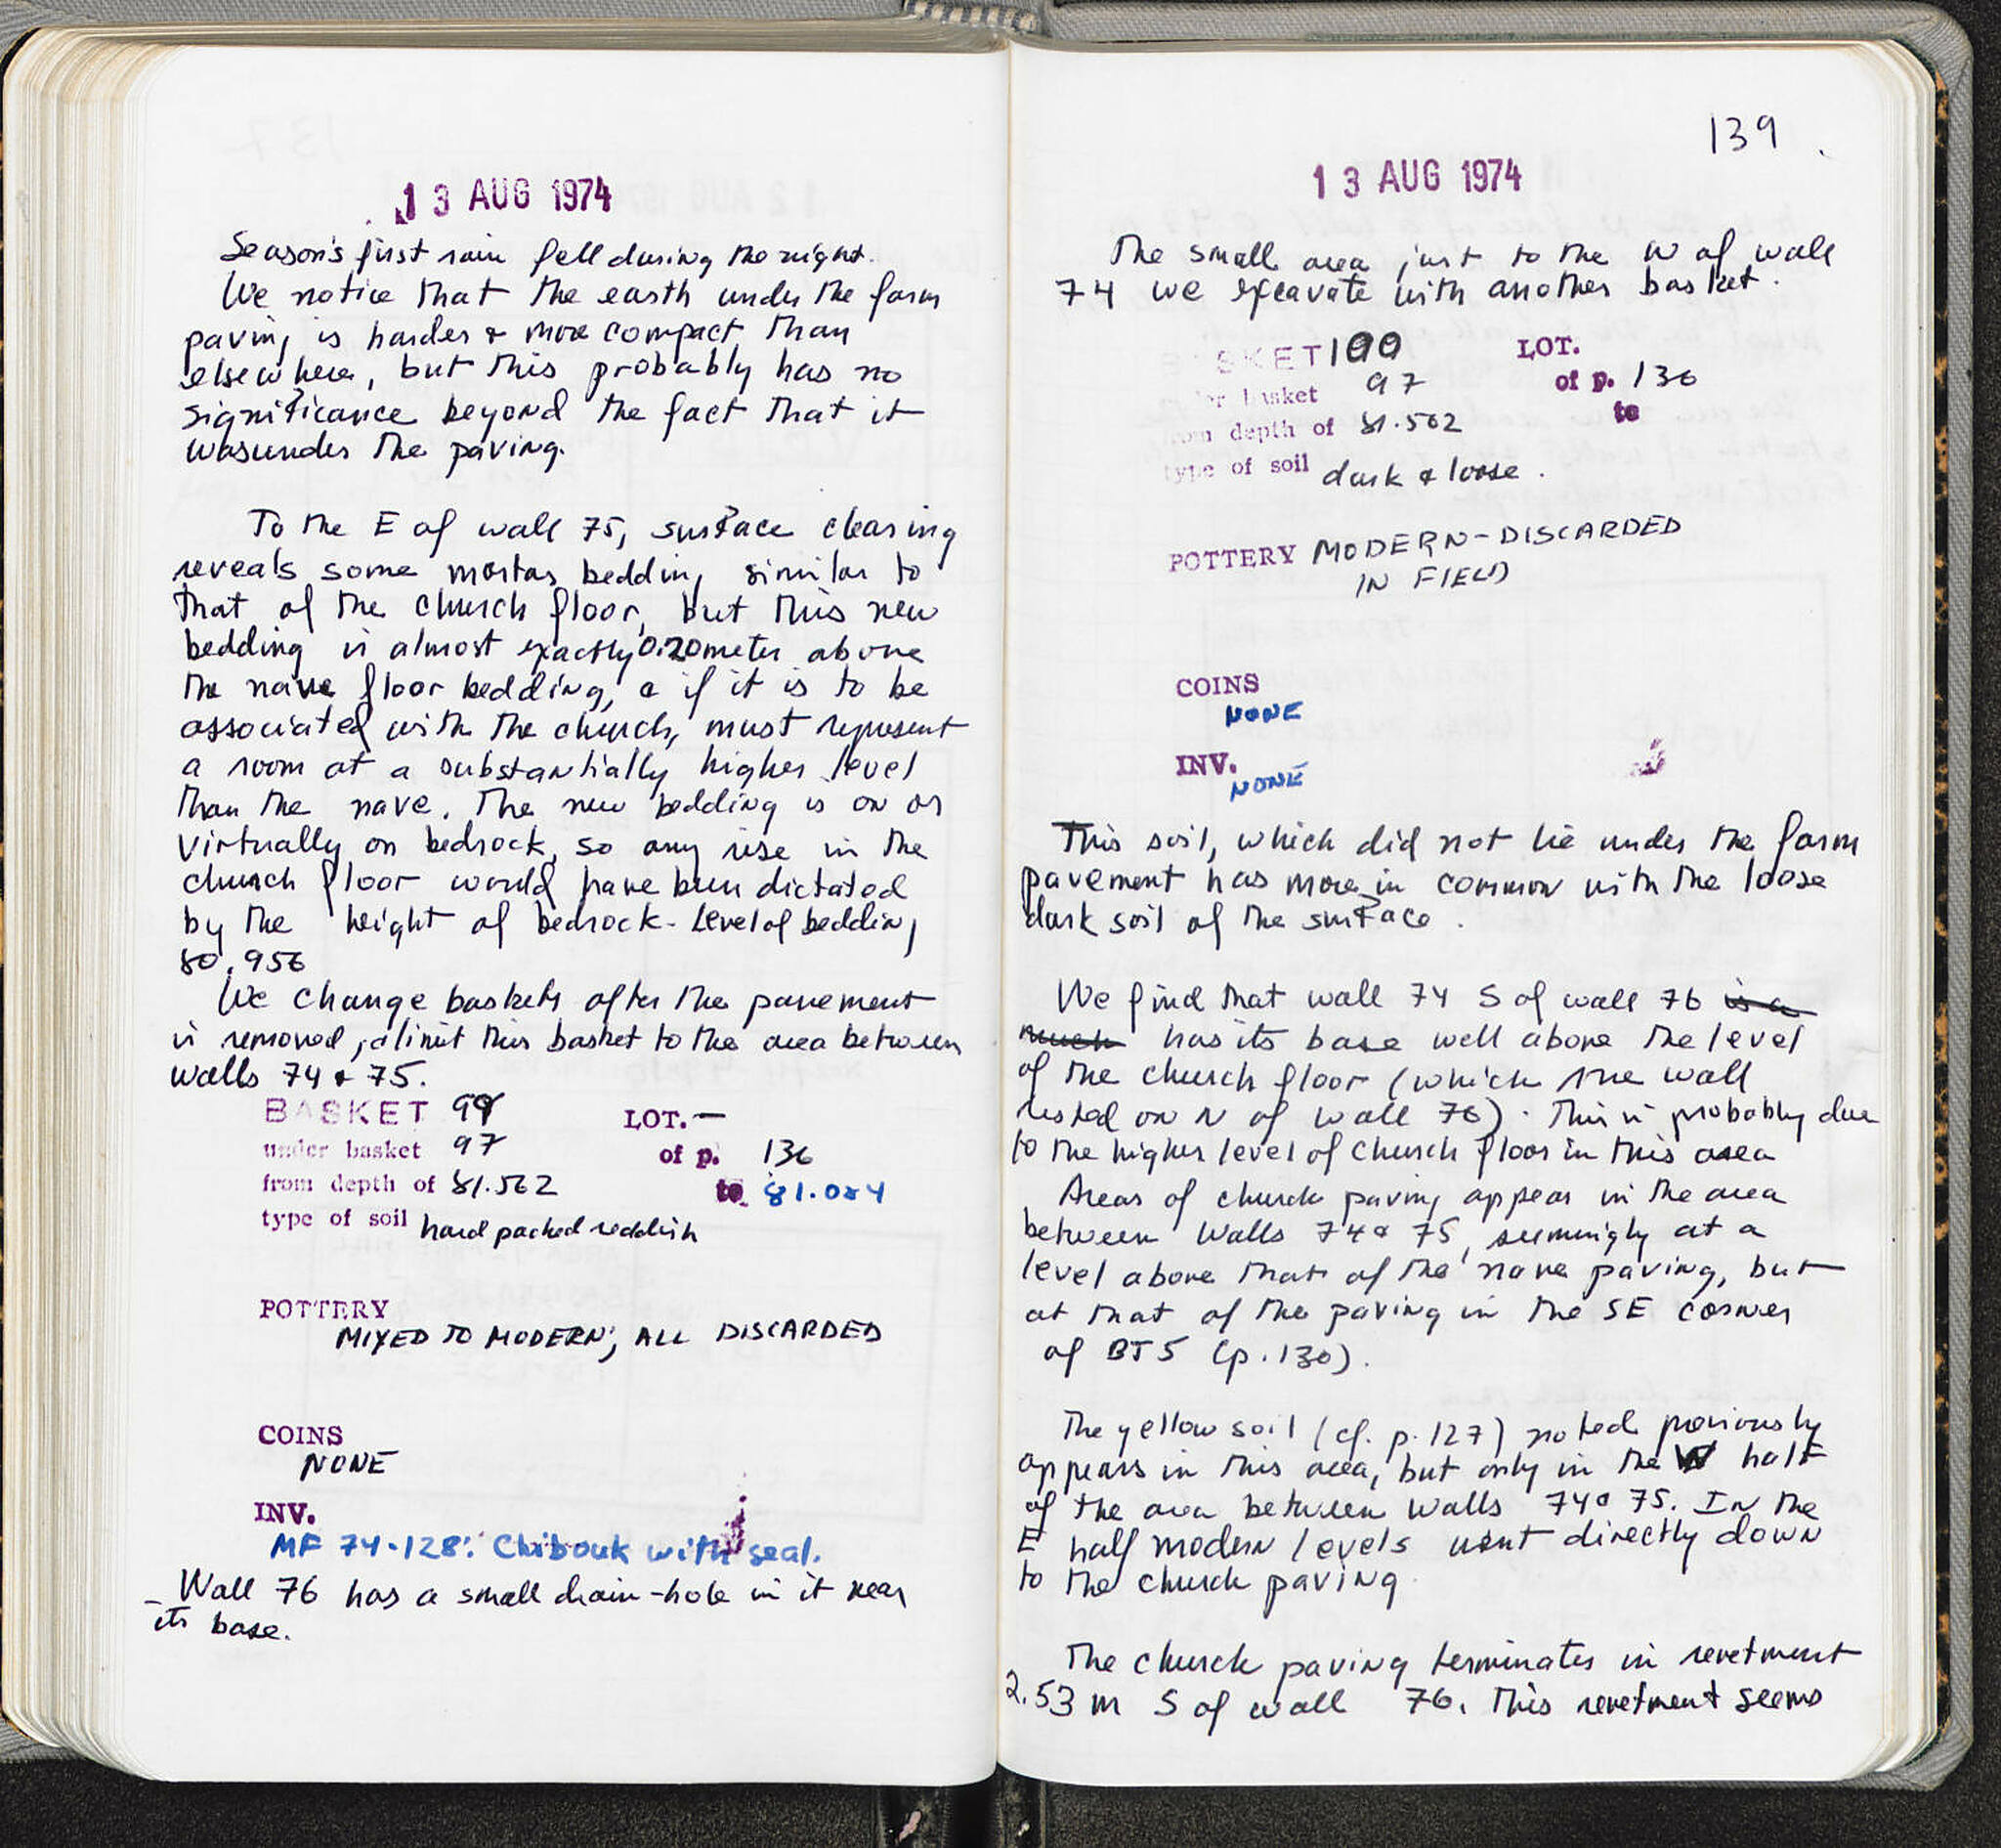 13 AUG 1974
Season's first rain fell during the night.
We notice that the earth under the farm
paving is harder & more compact than
elsewhere, but this probably has no
significance beyond the fact that it
was under the paving.
To the E of wall 75, surface clearing
reveals some mortar bedding similar to
that of the church floor, but this new
bedding is almost exactly 0.20 meter above
the nave floor bedding, & if it is to be
associated with the church, must represent
a room at a substantially higher level
than the nave. The new bedding is on or
virtually on bedrock, so any rise in the
church floor would have been dictated
by the height of bedrock - Level of bedding
80.956
We change baskets after the pavement
is removed, & limit this basket to the area between
walls 74 & 75.
BASKET 99 LOT. —
under basket 97 of p. 136
from depth of 81.562 to 81.084
type of soil hard packed reddish
POTTERY
MIXED TO MODERN; ALL DISCARDED
COINS
NONE
INV.
MF 74-128: Chibouk with seal.
- Wall 76 has a small drain-hole in it near
its base.
139
13 AUG 1974
The small area just to the W of wall
74 we excavate with another basket.
BASKET 100 LOT.
under basket 97 of p. 136
from depth of 81.562 to
type of soil dark & loose.
POTTERY MODERN - DISCARDED
IN FIELD
COINS
NONE
INV.
NONE
This soil, which did not lie under the farm
pavement has more in common with the loose
dark soil of the surface.
We find that wall 74 S of wall 76 is a
much has its base well above the level
of the church floor (which the wall
rested on N of wall 76). This is probably due
to the higher level of church floor in this area
Areas of church paving appear in the area
between walls 74 & 75, seemingly at a
level above that of the nave paving, but
at that of the paving in the SE corner
of BT5 (p. 130).
The yellow soil (cf. p. 127) noted previously
appears in this area, but only in the W half
of the area between walls 74 & 75. In the
E half modern levels went directly down
to the church paving.
The church paving terminates in revetment
2.53 m S of wall 76. This revetment seems